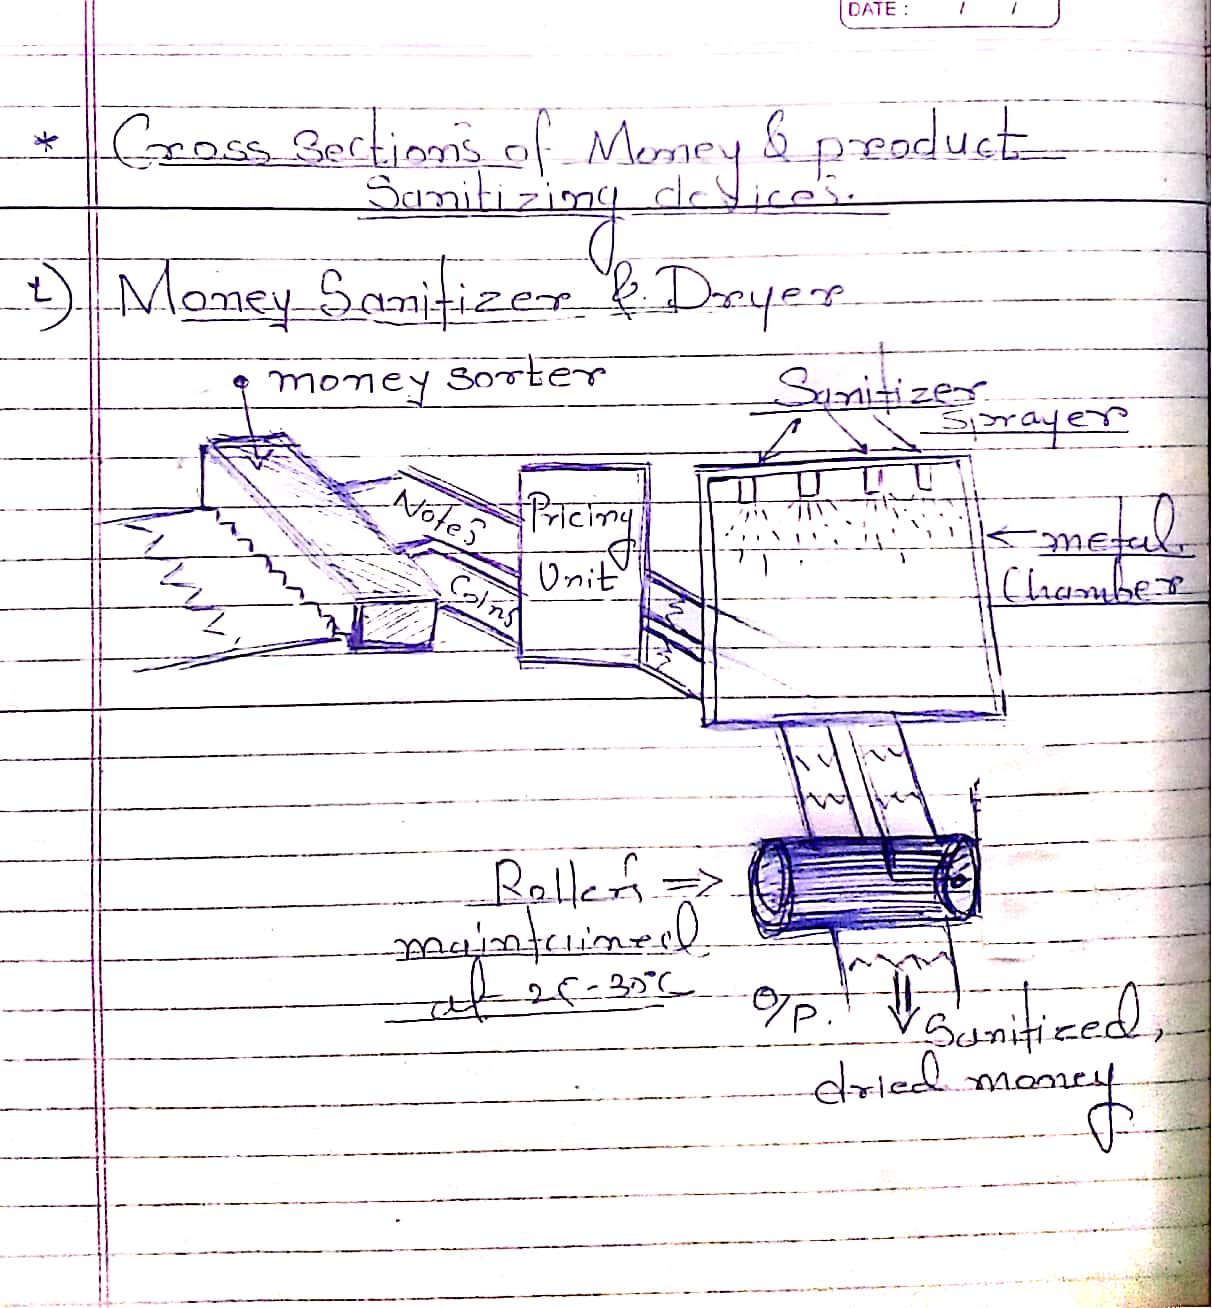 DATE : / /
* Cross Sections of Money & product
Sanitizing devices.
1) Money Sanitizer & Dryer
money sorter
Sanitizer
Sprayer
Notes
Coins
Pricing
Unit
← metal
Chamber
Rollers ⇒
maintained
at 25-30°C
O/P.
Sanitized,
dried money